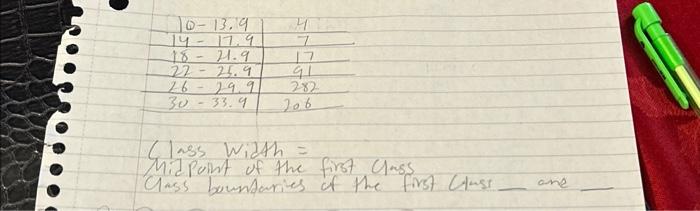 10 - 13.9 4
14 - 17.9 7
18 - 21.9 17
22 - 25.9 91
26 - 29.9 282
30 - 33.9 206
Class Width =
MidPoint of the first Class
Class boundaries of the first Class __ and __